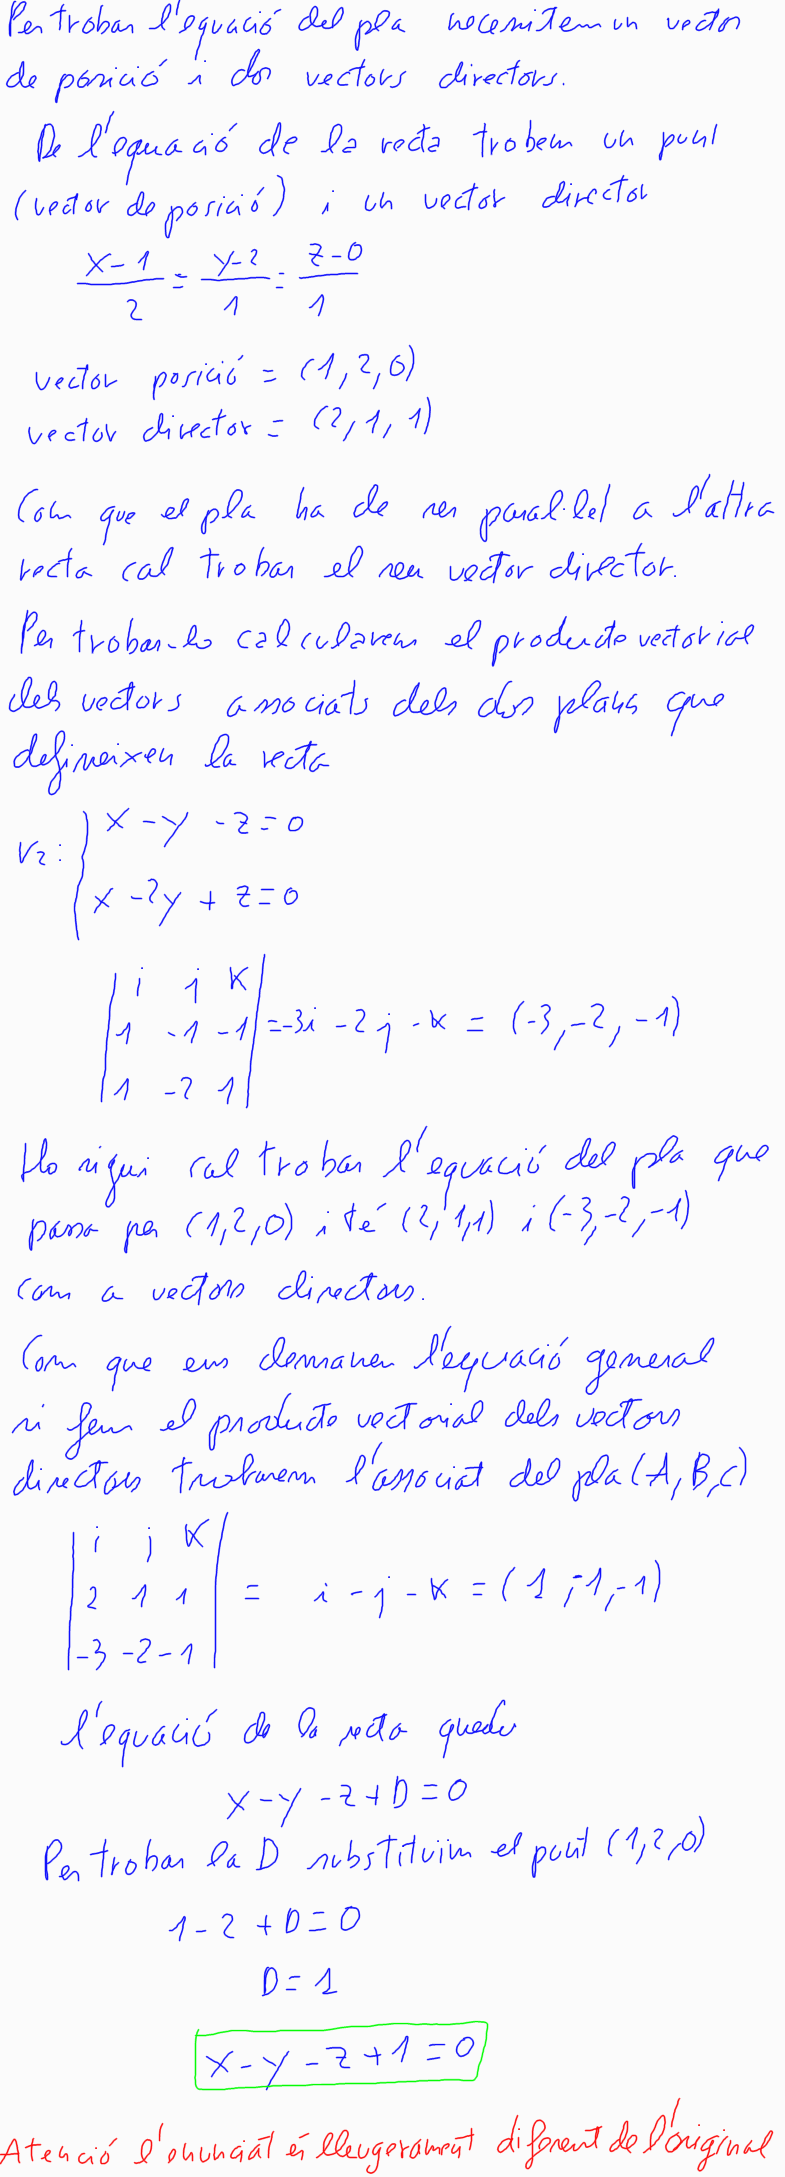 Per trobar l'equació del pla necessitem un vector
de posició i dos vectors directors.
De l'equació de la recta trobem un punt
(vector de posició) i un vector director
x-1/2 = y-2/1 = z-0/1
vector posició = (1,2,0)
vector director = (2,1,1)
Com que el pla ha de ser paral·lel a l'altra
recta cal trobar el seu vector director.
Per trobar-lo calcularem el producte vectorial
dels vectors associats dels dos plans que
defineixen la recta
r2: { x - y - z = 0
x - 2y + z = 0
| i j k |
| 1 -1 -1 | = -3i - 2j - k = (-3,-2,-1)
| 1 -2 1 |
Ho sigui cal trobar l'equació del pla que
passa per (1,2,0) i té (2,1,1) i (-3,-2,-1)
com a vectors directors.
Com que ens demanen l'equació general
si fem el producte vectorial dels vectors
directors trobarem l'associat del pla (A,B,C)
| i j k |
| 2 1 1 | = i - j - k = (1,-1,-1)
| -3 -2 -1 |
l'equació de la recta queda
x - y - z + D = 0
Per trobar la D substituim el punt (1,2,0)
1 - 2 + D = 0
D = 1
x - y - z + 1 = 0
Atenció l'enunciat és lleugerament diferent de l'original